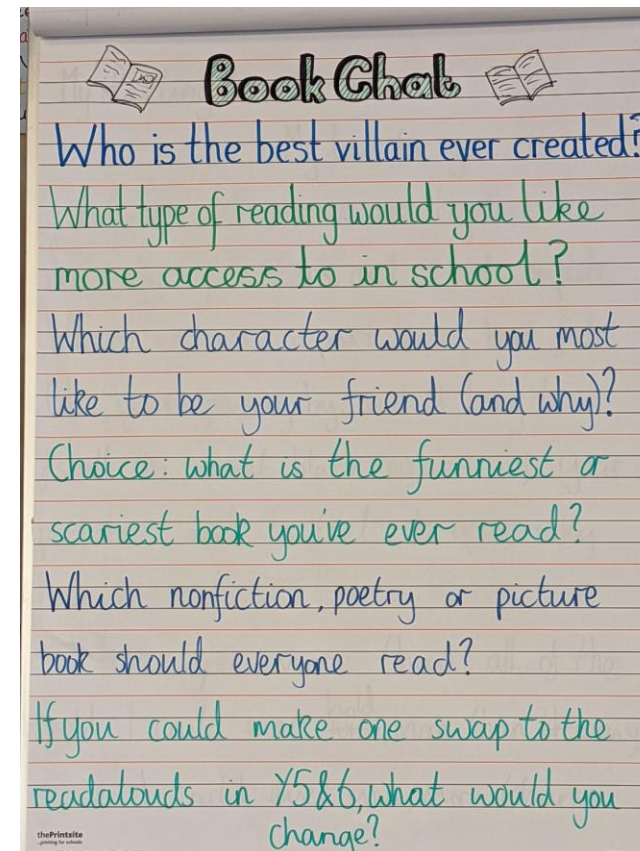 Book Chat
Who is the best villain ever created?
What type of reading would you like
more access to in school?
Which character would you most
like to be your friend (and why)?
Choice: what is the funniest or
scariest book you've ever read?
Which nonfiction, poetry or picture
book should everyone read?
If you could make one swap to the
readalouds in Y5&6, what would you
change?
thePrintsite
...printing for schools